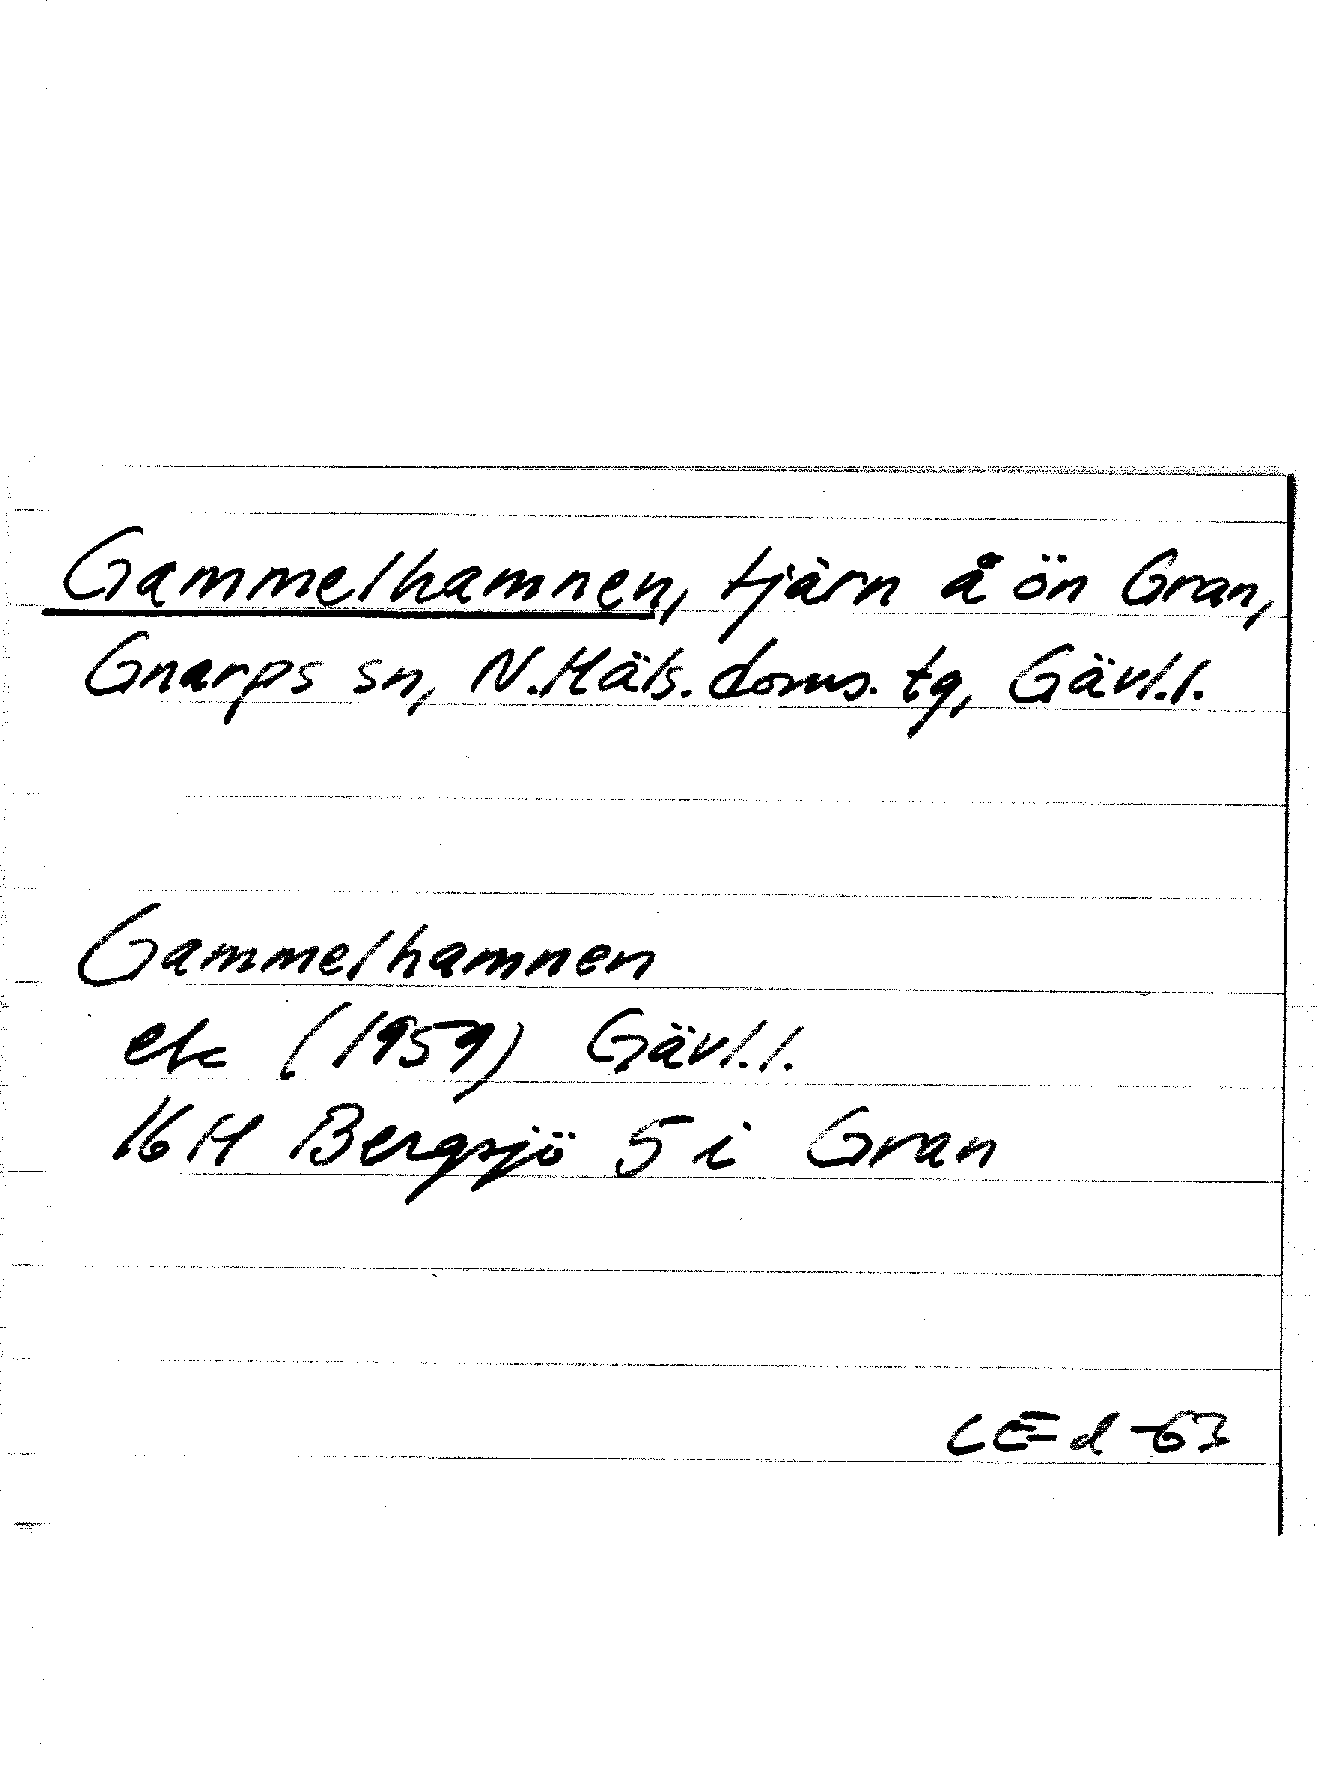 Gammelhamnen, tjärn å ön Gran,
Gnarps sn, N.Häls. doms. tg, Gävl.l.
Gammelhamnen
ek (1959) Gävl.l.
16H Bergsjö 5 i Gran
CEd -63